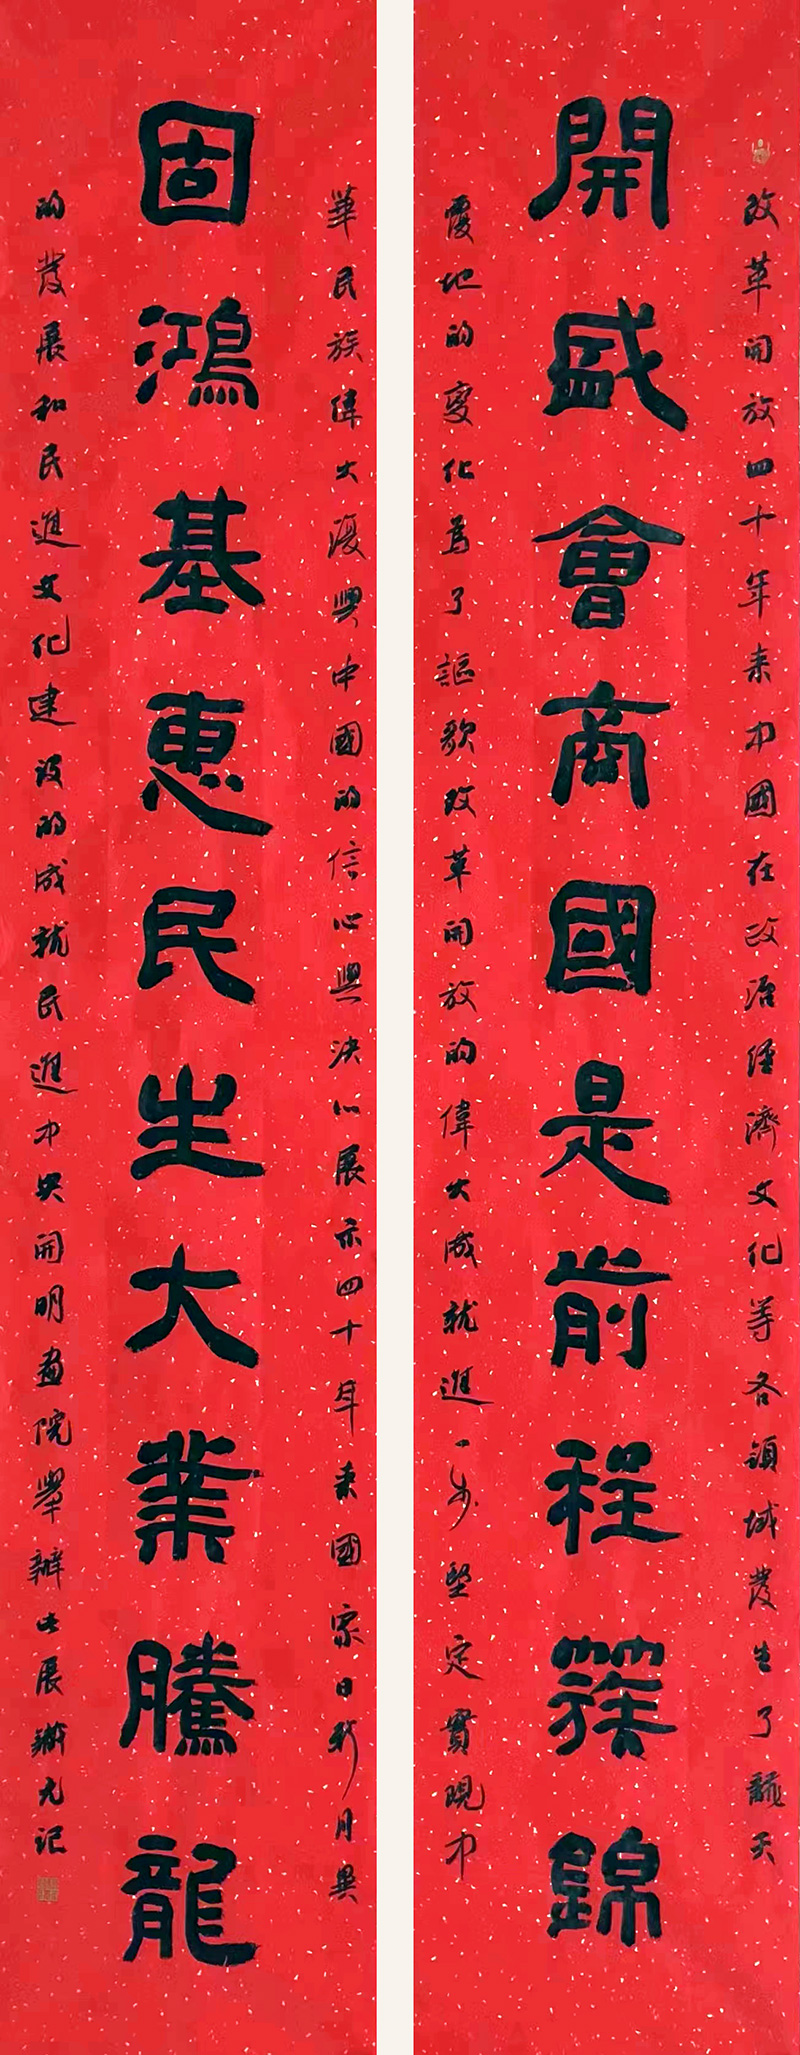 改革開放四十年來中國在政治經濟文化等各領域發生了翻天
開盛會商國是前程簇錦
覆地的變化為了謳歌改革開放的偉大成就進一步堅定實現中
華民族偉大復興中國的信心與決心展示四十年來國家日新月異
固鴻基惠民生大業騰龍
的發展和民進文化建設的成就民進中央開明畫院舉辦此展記